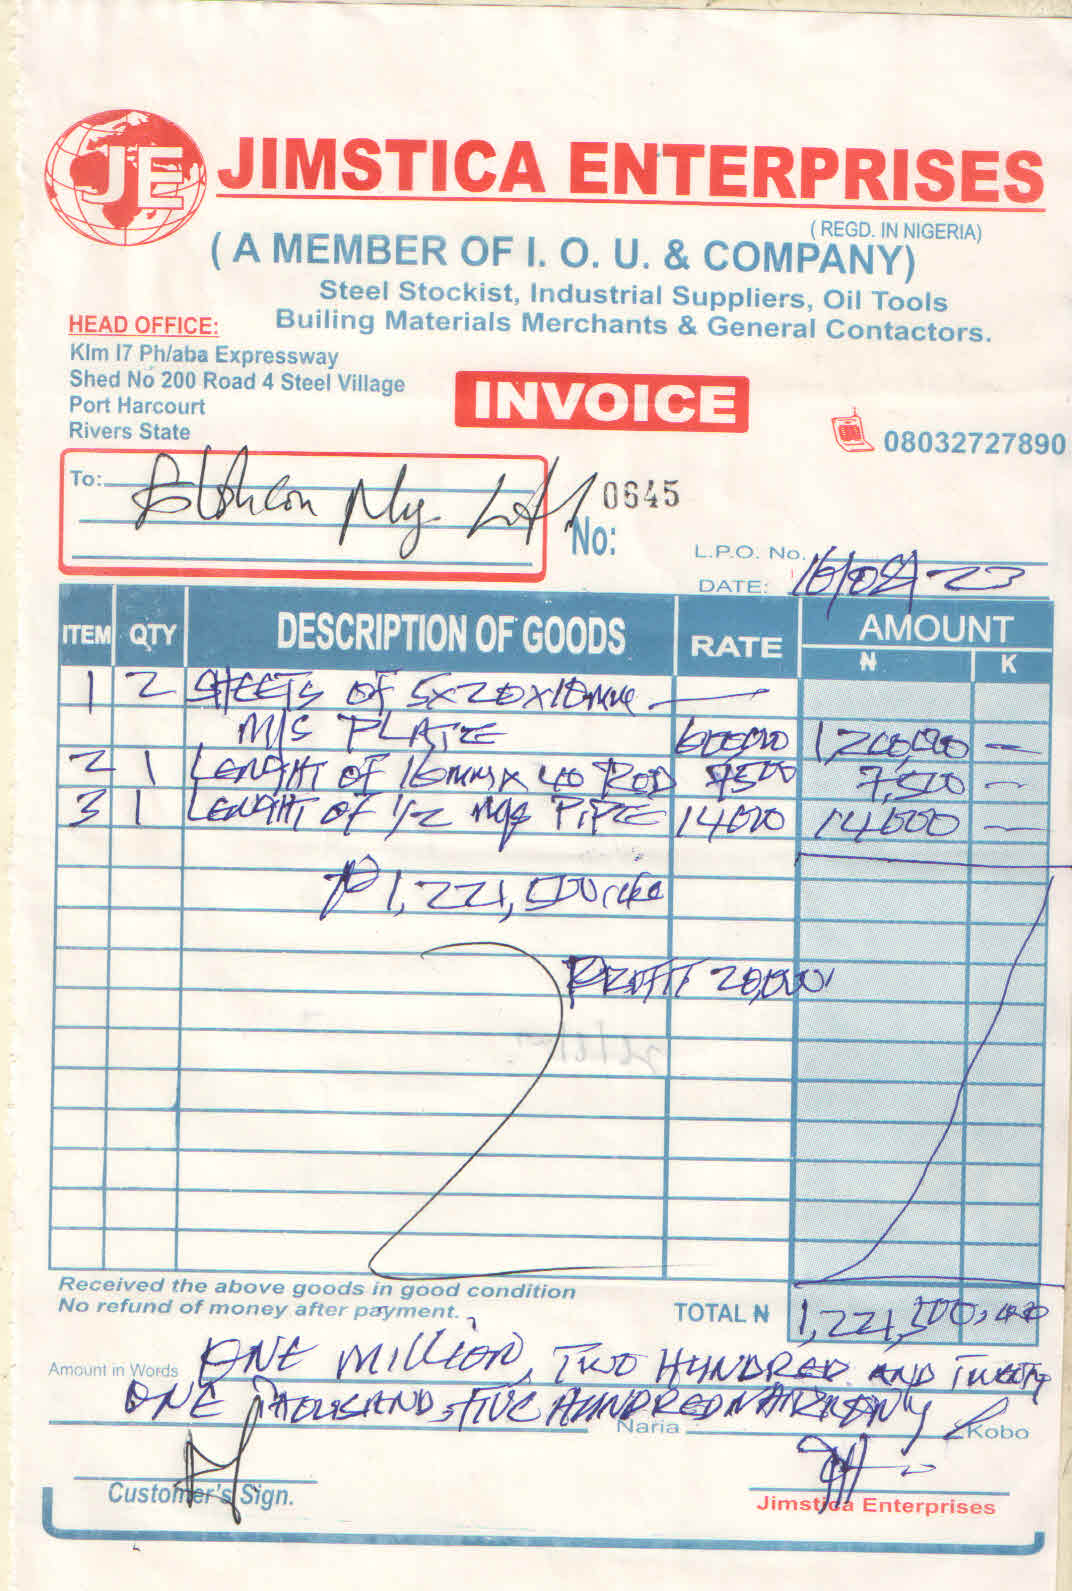 JE JIMSTICA ENTERPRISES
( REGD. IN NIGERIA)
( A MEMBER OF I. O. U. & COMPANY)
Steel Stockist, Industrial Suppliers, Oil Tools
Builing Materials Merchants & General Contactors.
HEAD OFFICE:
Klm 17 Ph/aba Expressway
Shed No 200 Road 4 Steel Village
Port Harcourt
Rivers State
INVOICE
08032727890
To:
0645
No:
L.P.O. No.
DATE: 16/02-23
ITEM QTY DESCRIPTION OF GOODS RATE AMOUNT
₦ K
1 2 SHEETS OF 5x20x10mm —
M/S PLATE 600000 1,200,000 —
2 1 LENGHT OF 16mm x 40 ROD 7500 7,500 —
3 1 LENGHT OF 1/2 PIPE 14000 14000 —
1,221,500
PROFIT 20,000
Received the above goods in good condition
No refund of money after payment.
TOTAL ₦ 1,221,500
Amount in Words ONE MILLION, TWO HUNDRED AND TWENTY
ONE THOUSAND, FIVE HUNDRED NAIRA ONLY
Naria Kobo
Customer's Sign.
Jimstica Enterprises